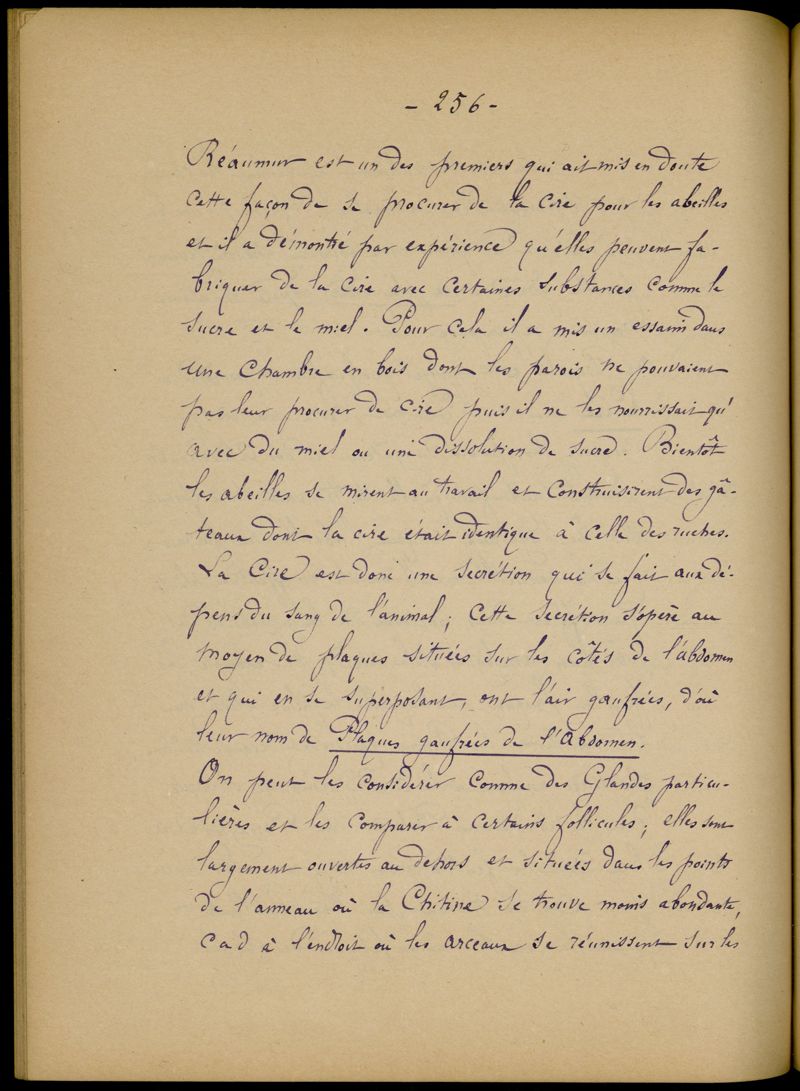 - 256 -
Réaumur est un des premiers qui ait mis en doute
cette façon de se procurer de la cire pour les abeilles
et il a démontré par expérience qu'elles peuvent fa-
briquer de la cire avec certaines substances comme le
sucre et le miel. Pour cela il a mis un essaim dans
une chambre en bois dont les parois ne pouvaient
pas leur procurer de cire puis il ne les nourrissait qu'
avec du miel ou une dissolution de sucre. Bientôt
les abeilles se mirent au travail et construisirent des gâ-
teaux dont la cire était identique à celle des ruches.
La Cire est donc une secrétion qui se fait aux dé-
pens du sang de l'animal; cette secrétion s'opère au
moyen de plaques situées sur les côtés de l'abdomen
et qui en se superposant, ont l'air gaufrées, d'où
leur nom de Plaques gaufrées de l'abdomen.
On peut les considérer comme des Glandes particu-
lières et les comparer à certains follicules; elles sont
largement ouvertes au dehors et situées dans les points
de l'anneau où la Chitine se trouve moins abondante,
c a d à l'endroit où les arceaux se réunissent sur les